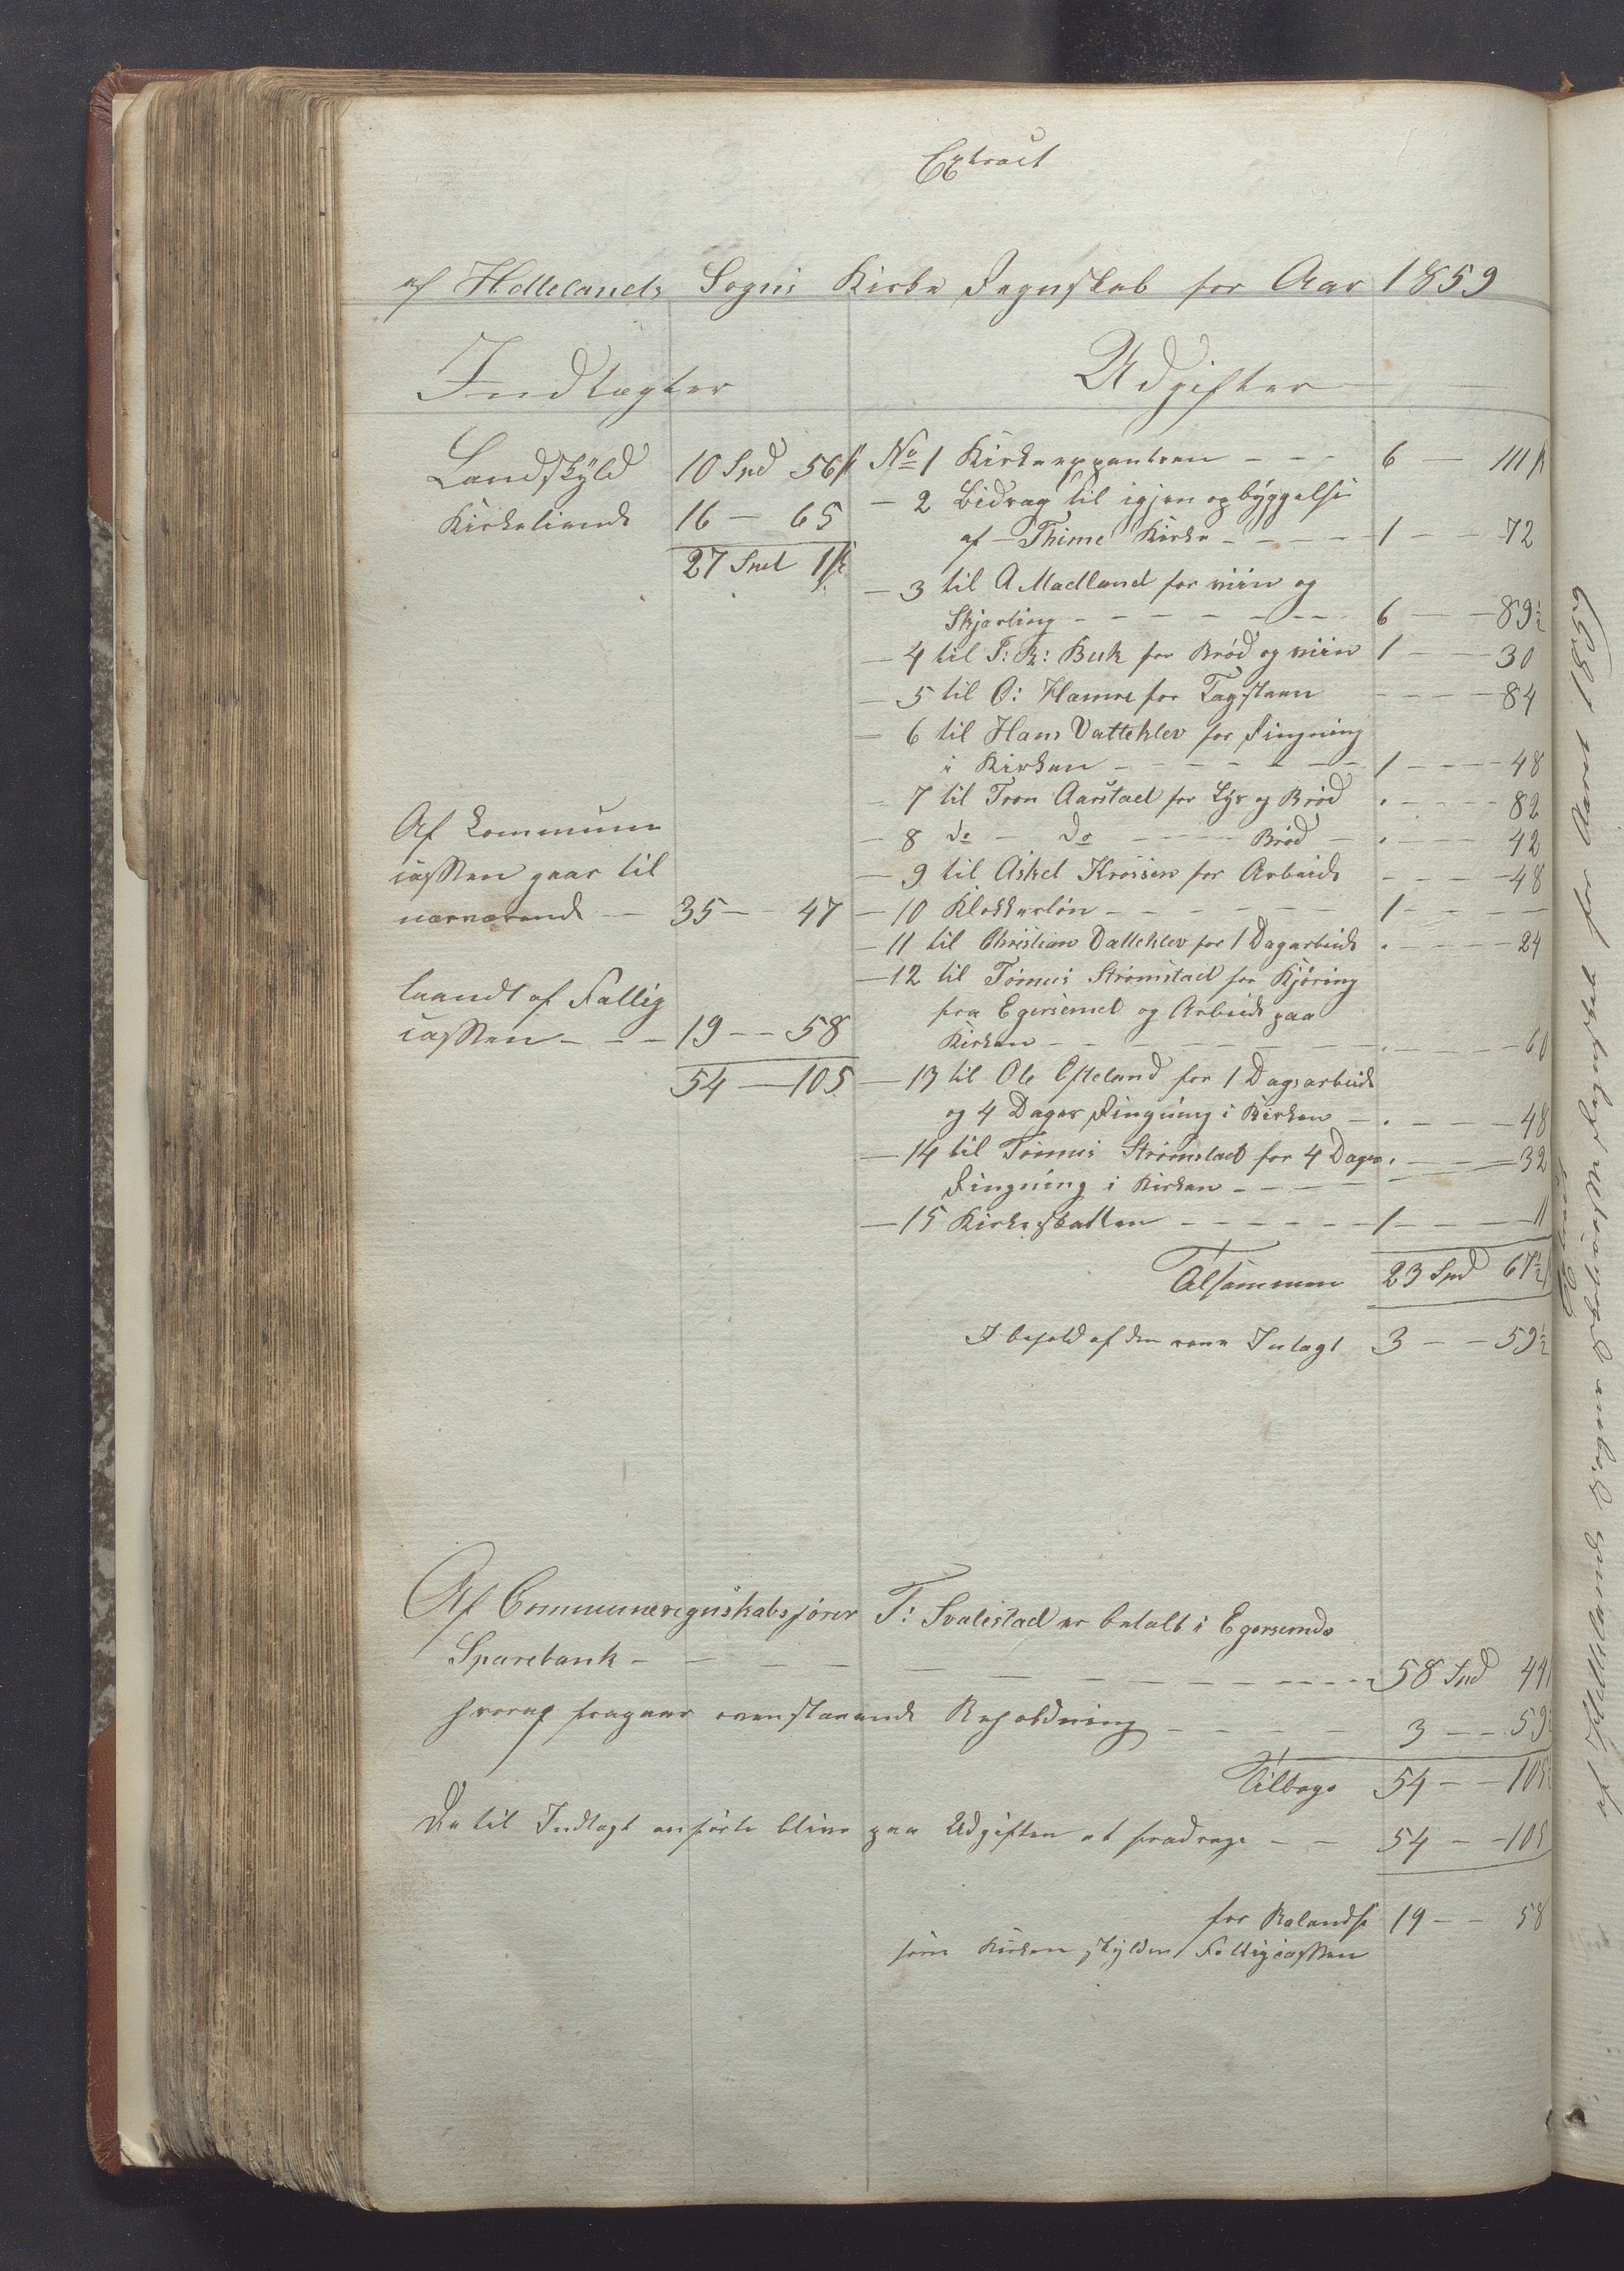 Extract
af Hellelands Sogns Kirke Regnskab for Aar 1859
Indtægter
Udgifter
Landskÿld 10 Spd 56 s
Kirketiende 16 — 65
27 Spd 1 s
Af Commune
cassen gaar til
nærværende — 35 — 47
laandt af Fattig
cassen — — — 19 — — 58
54 — 105
No 1 Kirkeexpentsen — — — 6 — 111 s
— 2 Bidrag til igjen opbÿggelse
af — Thime Kirke — — — — — 1 — — 72
— 3 til A Madland for viin og
Skjorting — — — — — — — 6 — — 89½
— 4 til T: R: Buk for Brød og viin 1 — — 30
— 5 til O: Hamre for Tagsteen — — — — 84
— 6 til Hans Vatteklev for Ringning
i Kirken — — — — — — — 1 — — — 48
— 7 til Tron Aarstad for Lÿs og Brød . — — — 82
— 8 do — do — — — Brød — . — — — 42
— 9 til Askel Krossen for Arbeide — — — — 48
— 10 Klokkerløn — — — — — — 1 — — — —
— 11 til Christian Vatteklev for 1 Dagarbeide . — — — — 24
— 12 til Tømes Strømstad for Kjøring
fra Egersund og Arbeide paa
Kirken — — — — — — — — . — — — — 60
— 13 til Ole Efteland for 1 Dagsarbeide
og 4 Dages Ringning i Kirken — . — — — 48
— 14 til Tømes Strømstad for 4 Dages . — — — 32
Ringning i Kirken — — — — — —
— 15 Kirkeskatten — — — — — — 1 — — — 11
Tilsammen 23 Spd 67½
I behold af den rene Intægt 3 — — 59½
Af Communeregnskabsfører T: Svalestad er betalt i Egersunds
Sparebank — — — — — — — — — — — — 58 Spd 44
hvoraf fragaar ovenstaaende Beholdning — — — — — 3 — — 59
Tilbage 54 — — 105
De til Indtægt anførte blive paa Udgiften at fradrage — — 54 — — 105
for Balandse 19 — — 58
som Kirken skÿlder Fattigcassen
Extract
af Hellelands Sogns Regnskab for Aaret 1859